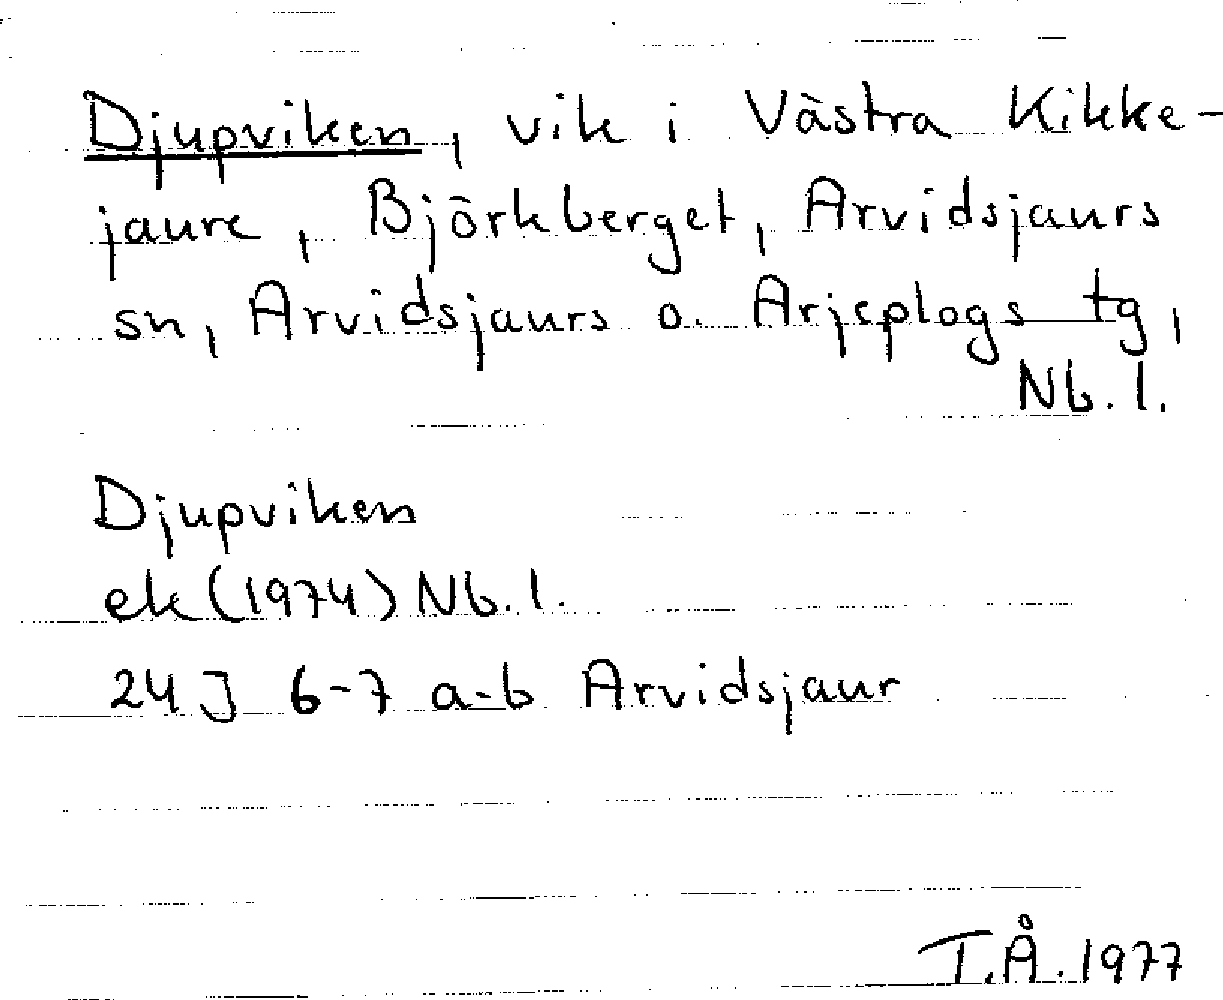 Djupviken, vik i Västra Kikke-
jaure, Björkberget, Arvidsjaurs
sn, Arvidsjaurs o. Arjeplogs tg,
Nb. l.
Djupviken
ek (1974) Nb. l.
24 J 6-7 a-b Arvidsjaur
I.Å. 1977